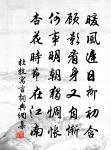 暖風遲日柳初含
顧影看身又自慚
何事明朝獨惆悵
杏花時節在江南
杜牧寓言詞典網書